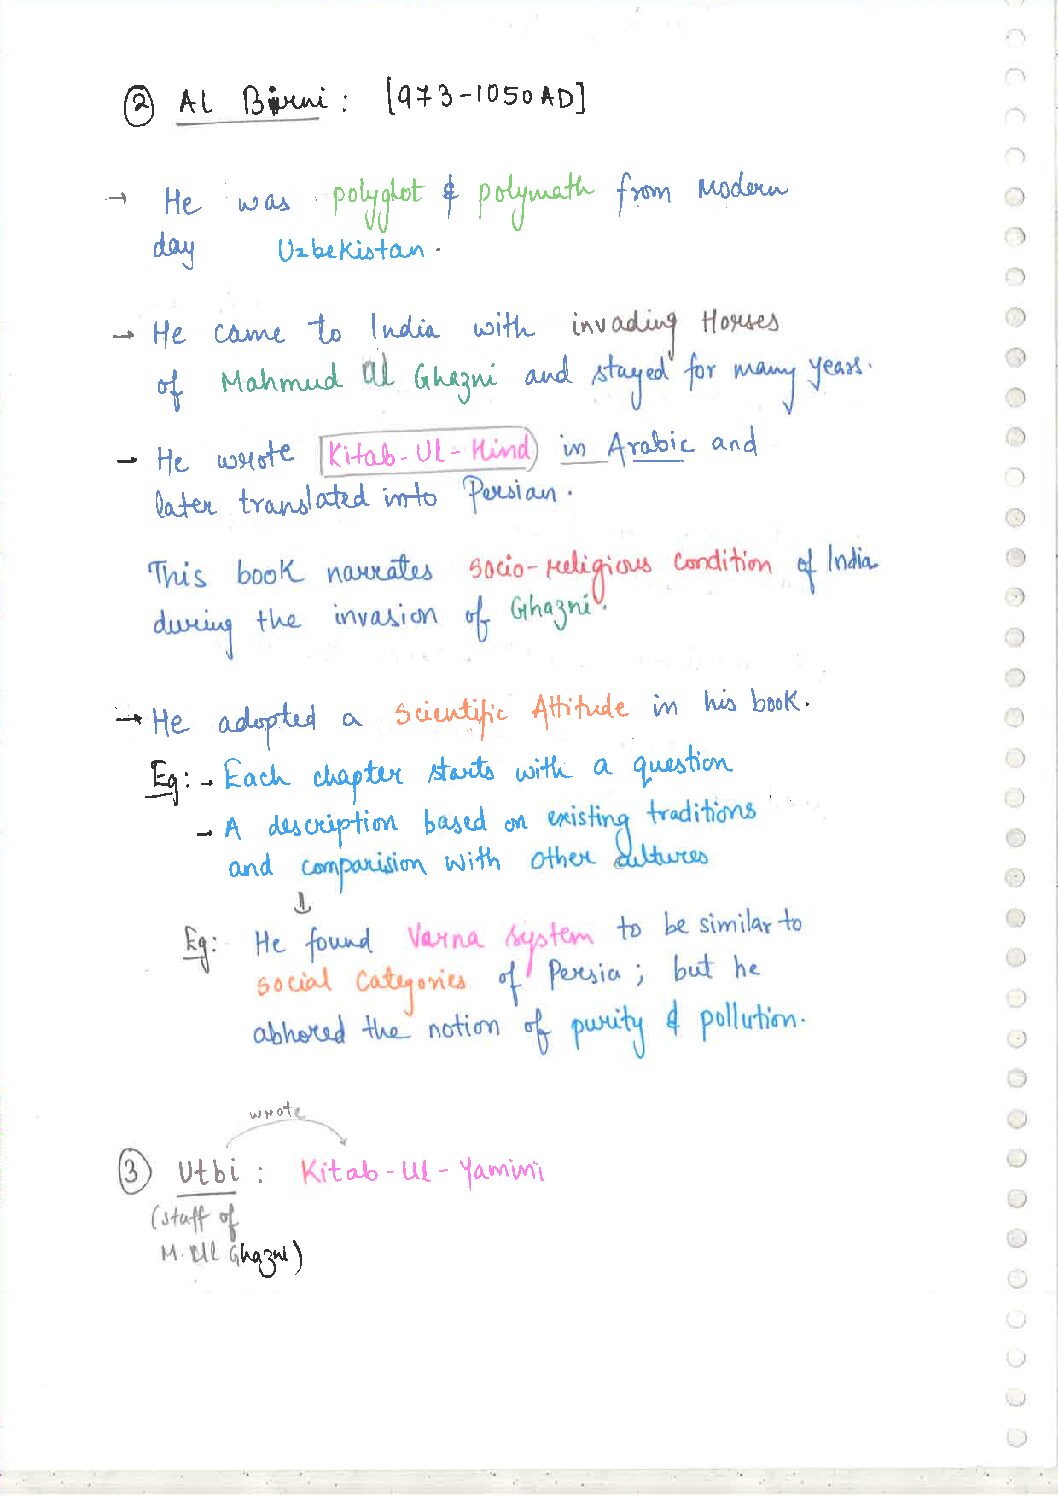 ② Al Biruni : [973-1050 AD]
→ He was polyglot & polymath from Modern
day Uzbekistan.
→ He came to India with invading Horses
of Mahmud al Ghazni and stayed for many years.
→ He wrote Kitab-Ul-Hind in Arabic and
later translated into Persian.
This book narrates socio-religious condition of India
during the invasion of Ghazni.
→ He adopted a Scientific Attitude in his book.
Eg: → Each chapter starts with a question
→ A description based on existing traditions
and comparision with other cultures
↓
Eg: He found Varna system to be similar to
social categories of Persia ; but he
abhored the notion of purity & pollution.
wrote
③ Utbi : Kitab-Ul-Yamini
(staff of
M. Ul Ghazni)